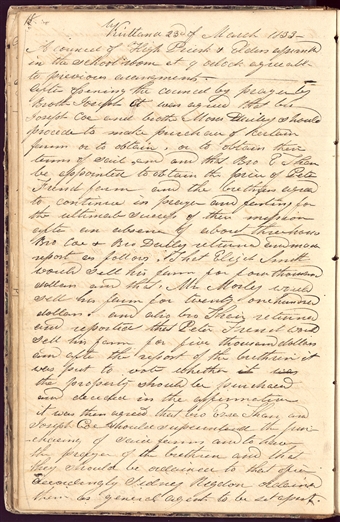 18
Kirtland 23d of March 1833—
A council of High Priests & Elders
in the school room at 9 oclock agreeable
to previous arrangment—
After opening the council by prayer by
Broth Joseph it was agreed that bro
Joseph Coe and broth Moses Dailey should
proceide to make purchase of certain
farms or to obtain, or to obtain their
terms of sail and and that Bro E Thare
be appointed to obtain the price of Peter
French farm and the brethren agree
to continue in prayer and fasting for
the ultimate success of their mission
after an absence of about three hours
Bro Coe & Bro Dailey returned and made
report as follows, That Elijah Smith
would sell his farm for four thousand
dollars and that Mr. Morley would
sell his farm for twenty one hundred
dollars, and also bro Thair returned
and reported that Peter French would
sell his farm for five thousand dollars
and after the report of the brethren it
was put to vote whether it was
the property should be purchased
and decided in the affirmative
it was then agreed that bro Ezra Thare and
Joseph Coe should superintend the pur-
chasing of said farms and to have
the prayer of the brethren and that
they should be ordained to that
accordingly Sidney Rigdon ordained
them as general agents to be set apart